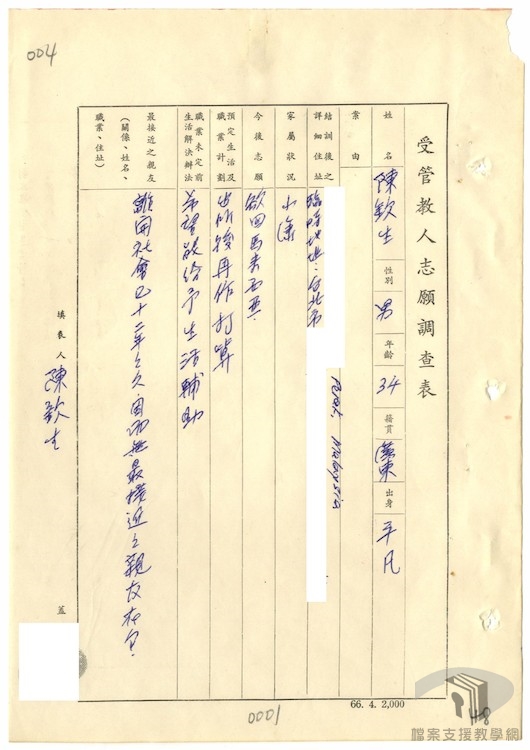 004
受管教人志願調查表
姓名 陳欽生 性別 男 年齡 34 籍貫 廣東 出身 平凡
案由
結訓後之詳細住址 臨時地址：台北市
Perak Malaysia
家屬狀況 小康
今後志願 欲回馬來西亞.
預定生活及職業計劃 出所後再作打算
職業未定前生活解決辦法 希望能給予生活輔助
最接近之親友（關係、姓名、職業、住址） 離開社會已十二年之久.因而無最接近之親友在台.
填表人 陳欽生 蓋
66. 4. 2,000
0001
48
檔案支援教學網